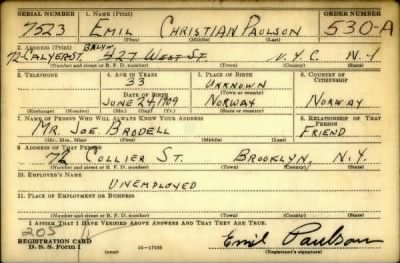 SERIAL NUMBER 1. NAME (Print) ORDER NUMBER
7523 EMIL CHRISTIAN PAULSON 530-A
(First) (Middle) (Last)
2. ADDRESS (Print)
BKLYN
427 WEST ST. N.Y.C. N.Y.
(Number and street or R. F. D. number) (Town) (County) (State)
3. TELEPHONE 4. AGE IN YEARS 5. PLACE OF BIRTH 6. COUNTRY OF CITIZENSHIP
33 UNKNOWN
DATE OF BIRTH (Town or county)
JUNE 24, 1909 NORWAY NORWAY
(Exchange) (Number) (Mo.) (Day) (Yr.) (State or country)
7. NAME OF PERSON WHO WILL ALWAYS KNOW YOUR ADDRESS 8. RELATIONSHIP OF THAT PERSON
MR. JOE. BRODELL FRIEND
(Mr., Mrs., Miss) (First) (Middle) (Last)
9. ADDRESS OF THAT PERSON
72 COLLIER ST. BROOKLYN, N.Y.
(Number and street or R. F. D. number) (Town) (County) (State)
10. EMPLOYER'S NAME
UNEMPLOYED
11. PLACE OF EMPLOYMENT OR BUSINESS
(Number and street or R. F. D. number) (Town) (County) (State)
I AFFIRM THAT I HAVE VERIFIED ABOVE ANSWERS AND THAT THEY ARE TRUE.
205
REGISTRATION CARD
D. S. S. Form 1 16-17105 Emil Paulson
(Registrant's signature)